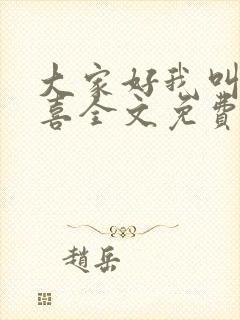 大家好我叫
喜全文免費
趙岳